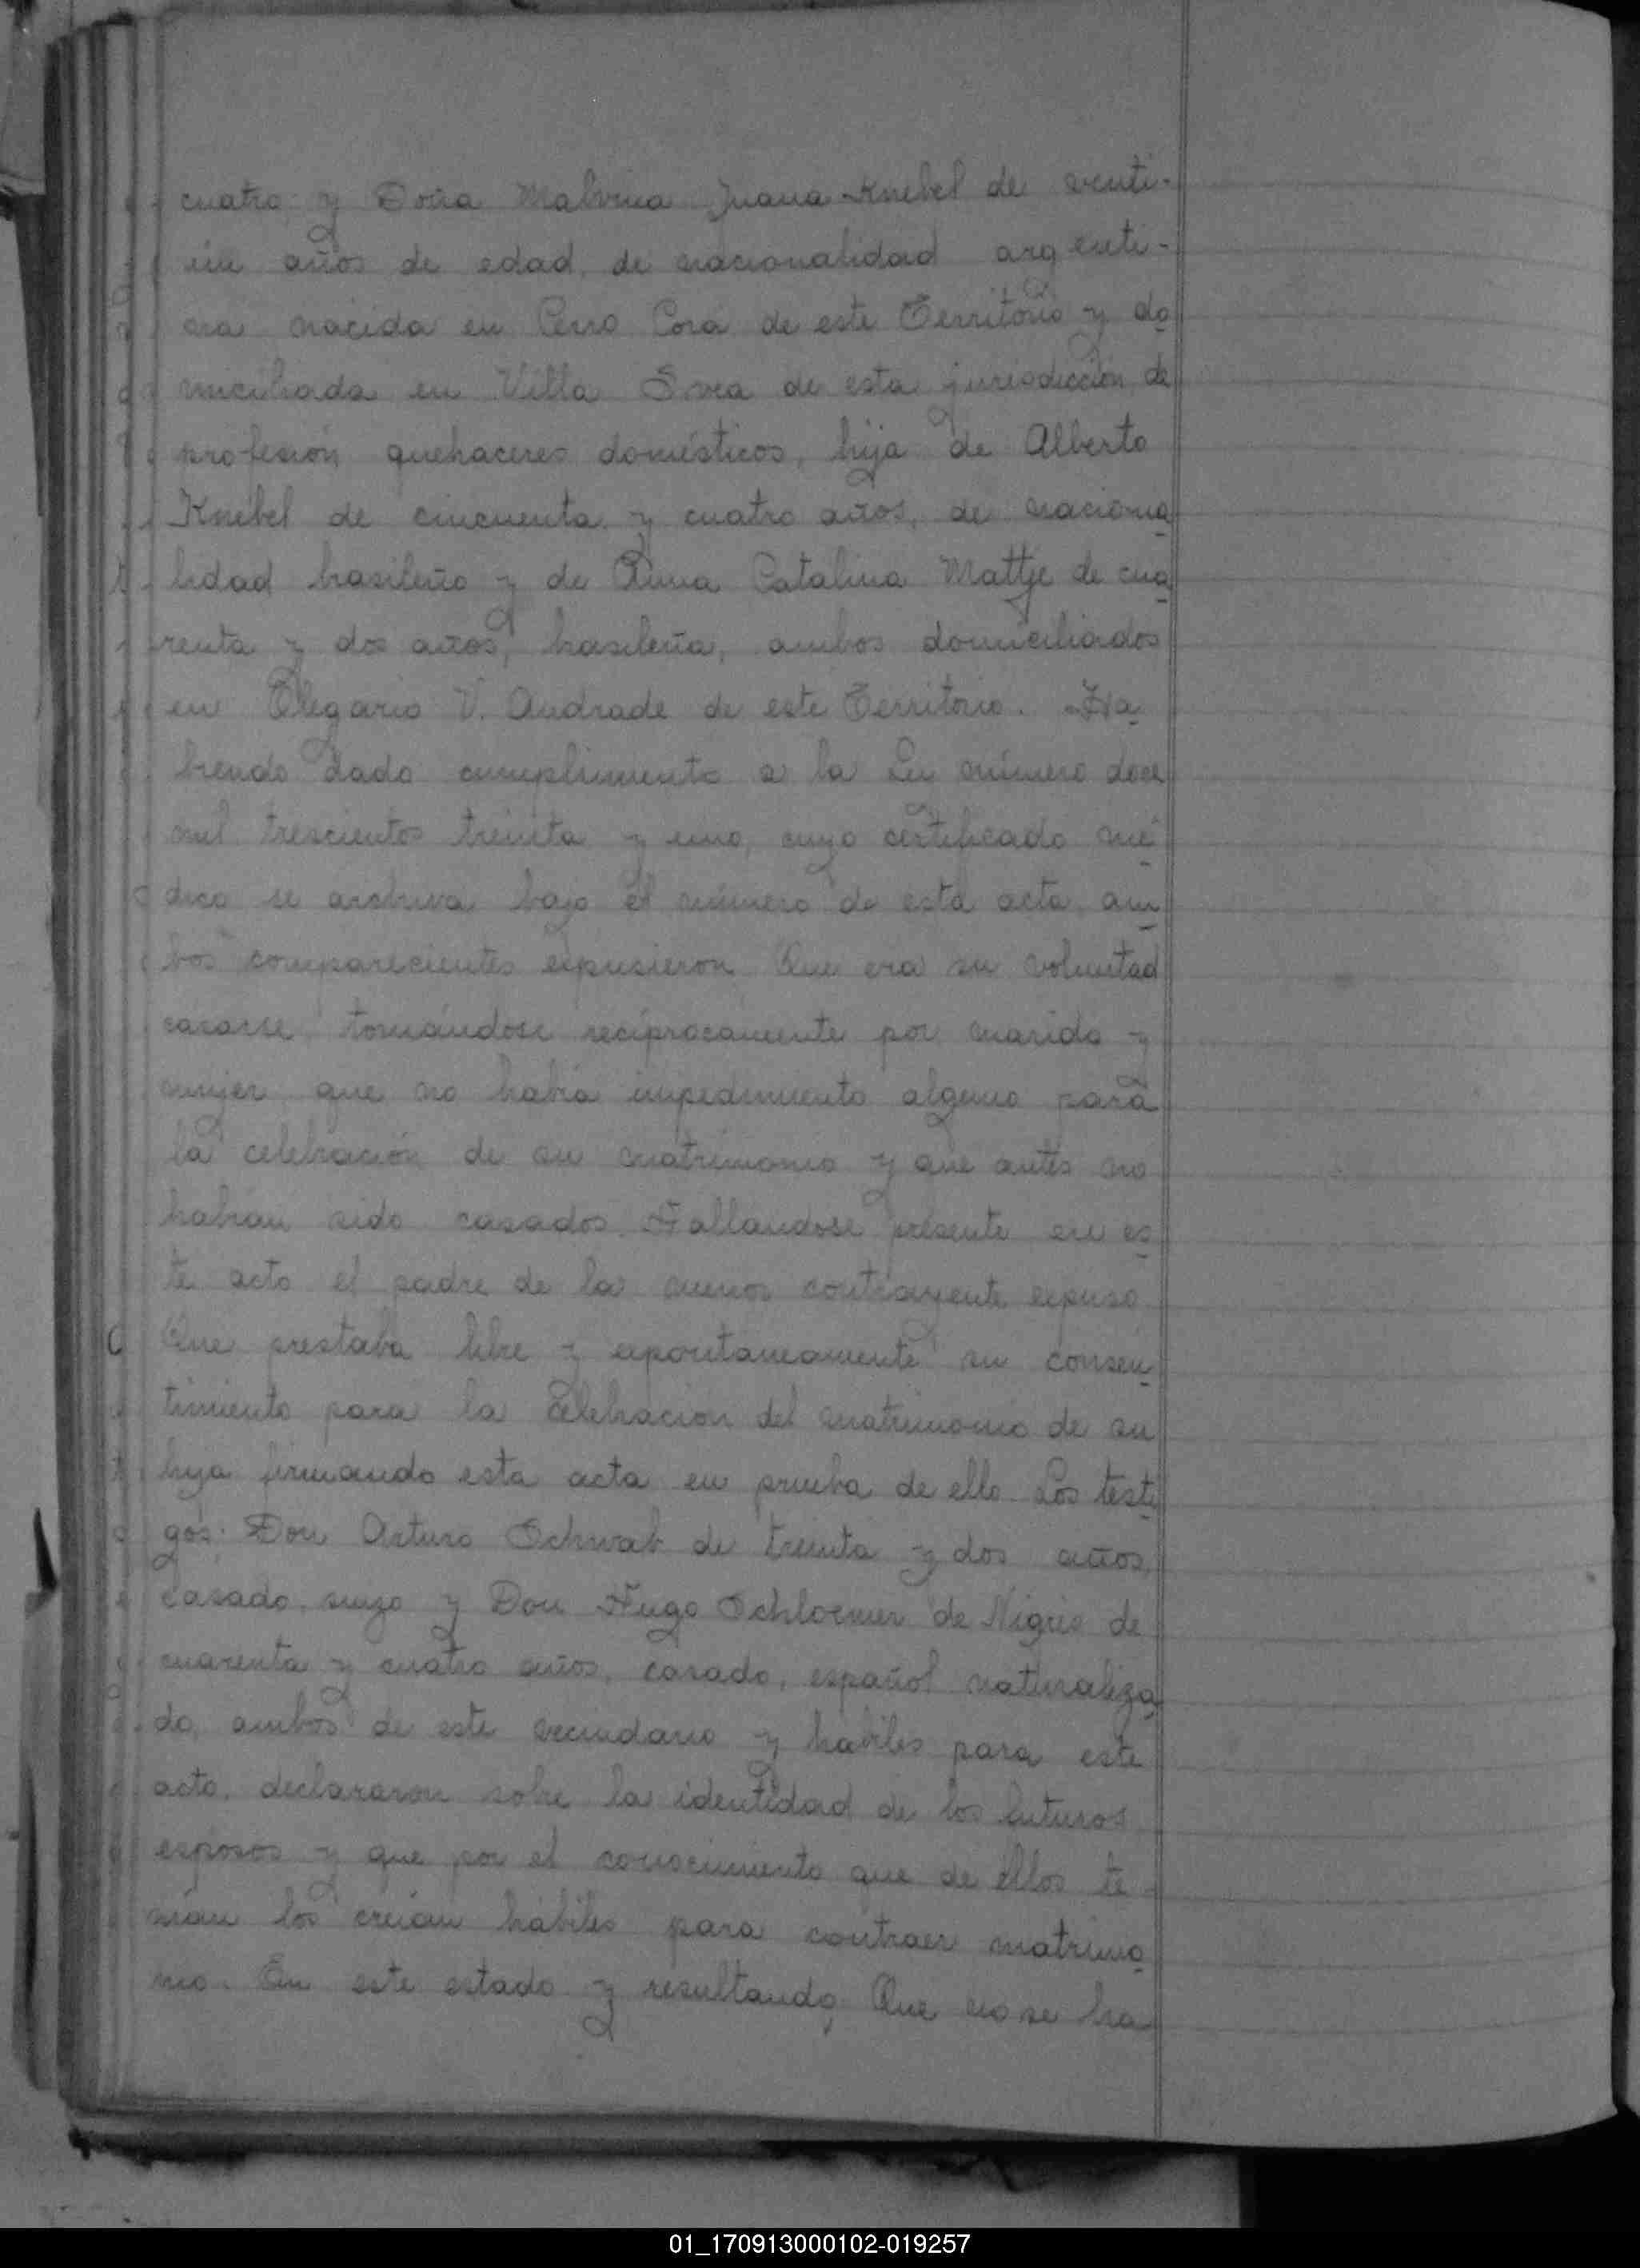 cuatro y Doña Malvina Juana Knebel de venti-
ún años de edad, de nacionalidad argenti-
na nacida en Cerro Corá de este Territorio y do
miciliada en Villa Svea de esta jurisdicción de
profesión quehaceres domésticos, hija de Alberto
Knebel de cincuenta y cuatro años, de naciona
lidad brasileño y de Anna Catalina Mattje de cua
renta y dos años, brasileña, ambos domiciliados
en Olegario V. Andrade de este Territorio. Ha
biendo dado cumplimiento a la Ley número doce
mil trescientos treinta y uno, cuyo certificado mé
dico se archiva bajo el número de esta acta, am
bos comparecientes expusieron Que era su voluntad
casarse, tomándose recíprocamente por marido y
mujer, que no había impedimento alguno para
la celebración de su matrimonio y que antes no
habían sido casados. Hallandose presente en es
te acto el padre de la menor contrayente expuso
Que prestaba libre y expontaneamente su consen
timiento para la celebración del matrimonio de su
hija firmando esta acta en prueba de ello. Los testi
gos: Don Arturo Schwab de treinta y dos años,
casado, suizo y Don Hugo Schloemer de Nigris de
cuarenta y cuatro años, casado, español naturaliza
do, ambos de este vecindario y hábiles para este
acto, declararon sobre la identidad de los futuros
esposos y que por el conocimiento que de ellos te-
nían los creían hábiles para contraer matrimo
nio. En este estado y resultando, Que no se ha
01_170913000102-019257